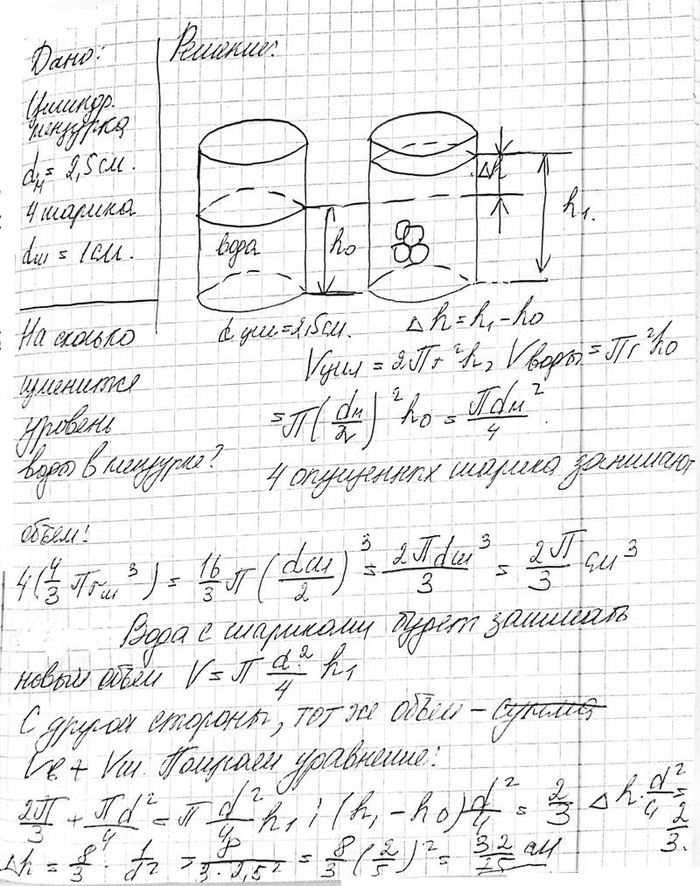 Дано:
Решение:
Цилиндр.
мензурка
dм = 2,5см.
4 шарика
dш = 1см.
На сколько
изменится
уровень
воды в мензурке?
вода
h₀
Δh
h₁.
d цил = 2,5см.
Δh = h₁ - h₀
Vцил = 2Πr²h, Vводы = Πr²h₀
= Π(dм/2)²h₀ = Πdм²/4.
4 опущенных шарика занимают
объем:
4(4/3 Πrш³) = 16/3 Π(dш/2)³ = 2Πdш³/3 = 2Π/3 см³
Вода с шариками будет занимать
новый объем V = Π d²/4 h₁
С другой стороны, тот же объем - сумма
Vв + Vш. Получаем уравнение:
2Π/3 + Πd²/4 = Π d²/4 h₁; (h₁ - h₀) d²/4 = 2/3 Δh · d²/4 = 2/3.
Δh = 8/3 · 1/d² = 8/(3 · 2,5²) = 8/3 (2/5)² = 32/75 см